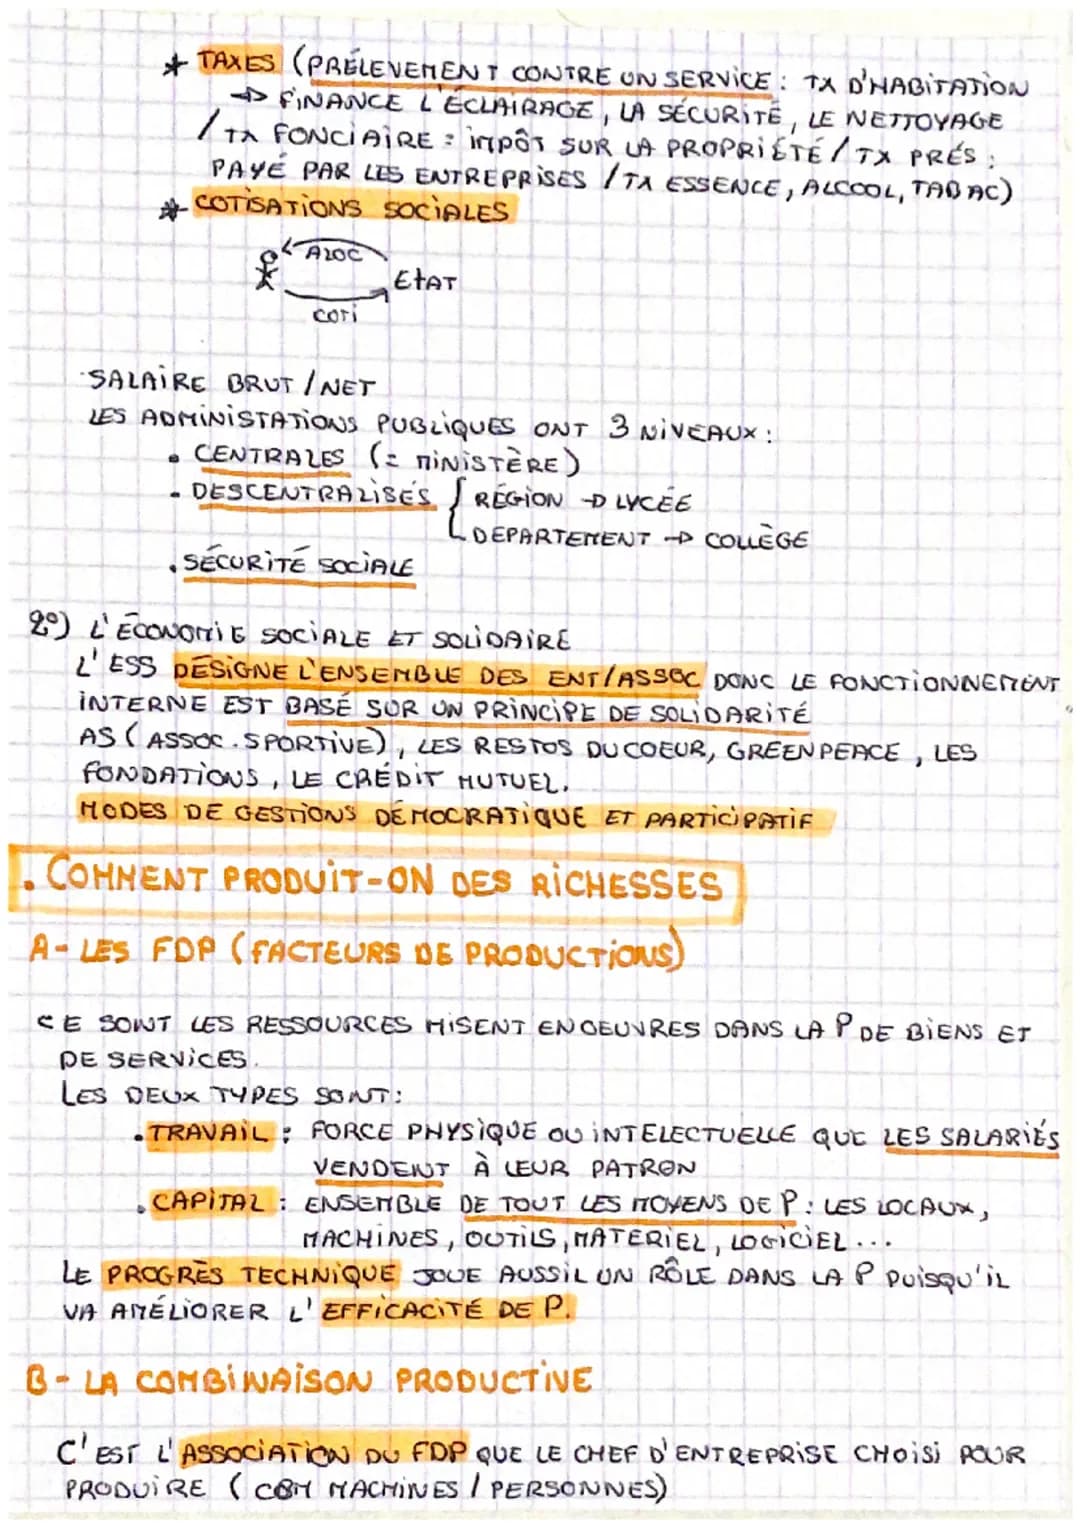 * TAXES (PRÉLEVEMENT CONTRE UN SERVICE : TX D'HABITATION
→ FINANCE L'ÉCLAIRAGE, LA SÉCURITÉ, LE NETTOYAGE
/ TX FONCIAIRE : IMPÔT SUR LA PROPRIÉTÉ / TX PRÉS :
PAYÉ PAR LES ENTREPRISES / TX ESSENCE, ALCOOL, TABAC)
* COTISATIONS SOCIALES
ALOC
ETAT
COTI
SALAIRE BRUT / NET
LES ADMINISTATIONS PUBLIQUES ONT 3 NIVEAUX :
• CENTRALES (= MINISTÈRE)
• DESCENTRALISÉS { RÉGION → LYCÉE
DÉPARTEMENT → COLLÈGE
• SÉCURITÉ SOCIALE
2°) L'ÉCONOMIE SOCIALE ET SOLIDAIRE
L'ESS DÉSIGNE L'ENSEMBLE DES ENT/ASSOC DONC LE FONCTIONNEMENT
INTERNE EST BASÉ SUR UN PRINCIPE DE SOLIDARITÉ
AS (ASSOC. SPORTIVE), LES RESTOS DU COEUR, GREENPEACE, LES
FONDATIONS, LE CRÉDIT MUTUEL.
MODES DE GESTIONS DÉMOCRATIQUE ET PARTICIPATIF
. COMMENT PRODUIT-ON DES RICHESSES
A- LES FDP (FACTEURS DE PRODUCTIONS)
CE SONT LES RESSOURCES MISENT EN OEUVRES DANS LA P DE BIENS ET
DE SERVICES.
LES DEUX TYPES SONT :
• TRAVAIL : FORCE PHYSIQUE OU INTELECTUELLE QUE LES SALARIÉS
VENDENT À LEUR PATRON
• CAPITAL : ENSEMBLE DE TOUT LES MOYENS DE P : LES LOCAUX,
MACHINES, OUTILS, MATERIEL, LOGICIEL ...
LE PROGRÈS TECHNIQUE JOUE AUSSIL UN RÔLE DANS LA P PUISQU'IL
VA AMÉLIORER L'EFFICACITÉ DE P.
B- LA COMBINAISON PRODUCTIVE
C'EST L'ASSOCIATION DU FDP QUE LE CHEF D'ENTREPRISE CHOISI POUR
PRODUIRE (CBM MACHINES / PERSONNES)